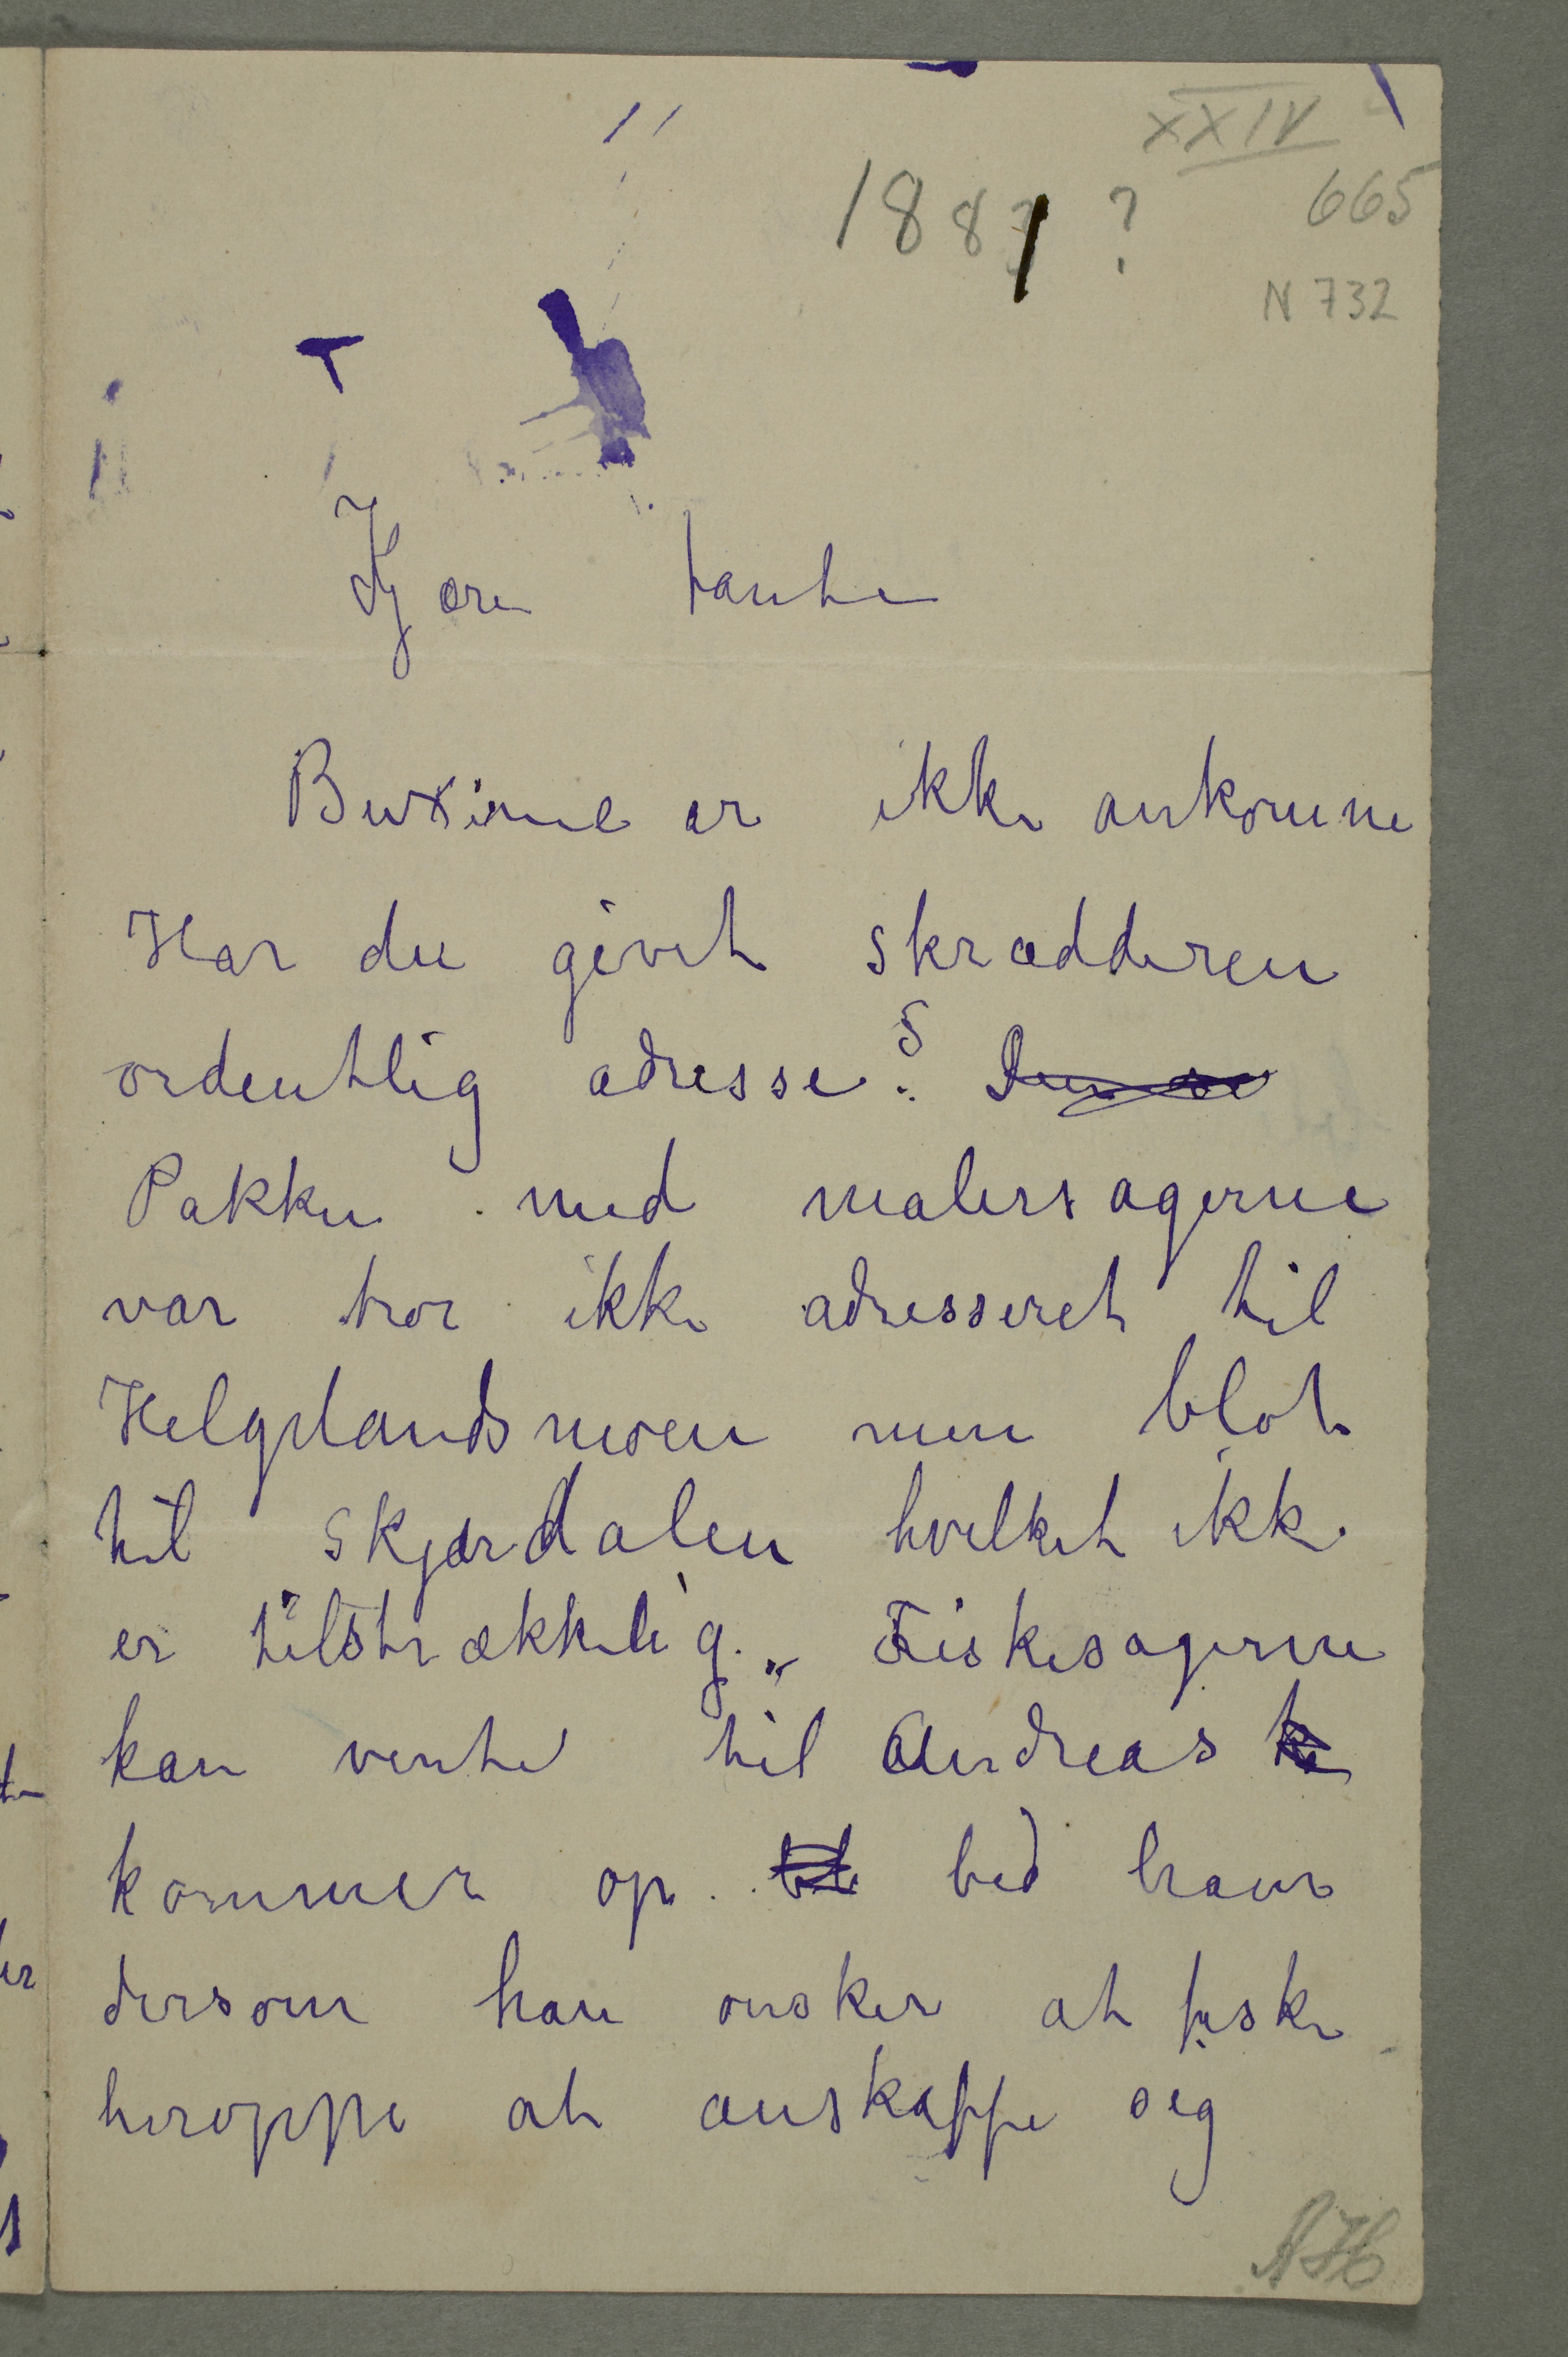 XXIV
1887 ?
665
N 732
Kjære tante
Buxerne er ikke ankomne
Har du givet skrædderen
ordentlig adresse?
Pakken med malersagerne
var tror ikke adresseret til
Helgelandsmoen men blot
til Skjærdalen hvilket ikke
er tilstrækkelig. Fiskesagerne
kan vente til Andreas
kommer op. bed ham
dersom han ønsker at fiske
heroppe at anskaffe sig